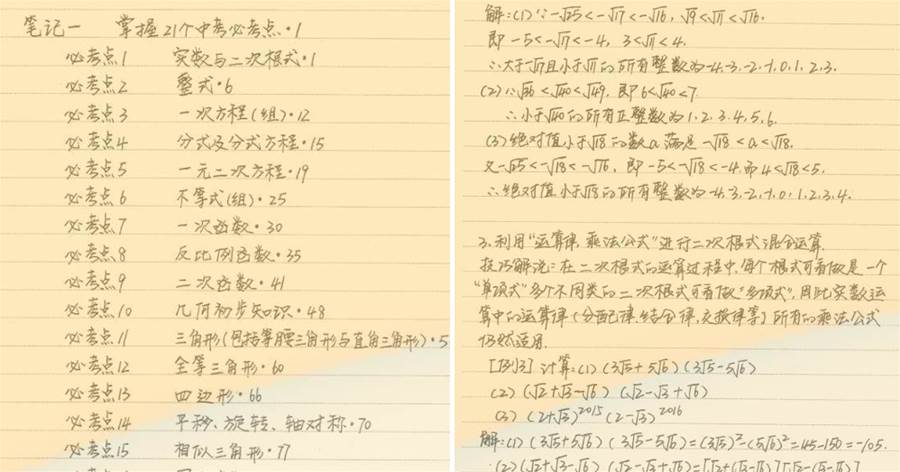 笔记一 掌握21个中考必考点·1
必考点1 实数与二次根式·1
必考点2 整式·6
必考点3 一次方程(组)·12
必考点4 分式及分式方程·15
必考点5 一元二次方程·19
必考点6 不等式(组)·25
必考点7 一次函数·30
必考点8 反比例函数·35
必考点9 二次函数·41
必考点10 几何初步知识·48
必考点11 三角形(包括等腰三角形与直角三角形)·5
必考点12 全等三角形·60
必考点13 四边形·66
必考点14 平移、旋转、轴对称·70
必考点15 相似三角形·77
解:(1)∵-√25<-√17<-√16, √9<√11<√16.
即-5<-√17<-4, 3<√11<4.
∴大于-√17且小于√11的所有整数为-4,-3,-2,-1,0,1,2,3.
(2)∵√36<√40<√49,即6<√40<7.
∴小于√40的所有正整数为1,2,3,4,5,6.
(3)绝对值小于√18的数a满足-√18<a<√18.
又-√25<-√18<-√16,即-5<-√18<-4,而4<√18<5.
∴绝对值小于√18的所有整数为-4,-3,-2,-1,0,1,2,3,4.
3.利用“运算律,乘法公式”进行二次根式混合运算.
技巧解说:在二次根式的运算过程中,每个根式可看做是一个
“单项式”多个不同类的二次根式可看做“多项式”,因此实数运
算中的运算律(分配律,结合律,交换律等)所有的乘法公式
仍然适用.
[例3]计算:(1)(3√5+5√6)(3√5-5√6)
(2)(√2+√3-√6)(√2-√3+√6)
(3)(2+√3)²⁰¹⁵(2-√3)²⁰¹⁶
解:(1)(3√5+5√6)(3√5-5√6)=(3√5)²-(5√6)²=45-150=-105.
(2)(√2+√3-√6)(√2-√3+√6)=[√2+(√3-√6)][√2-(√3-√6)]